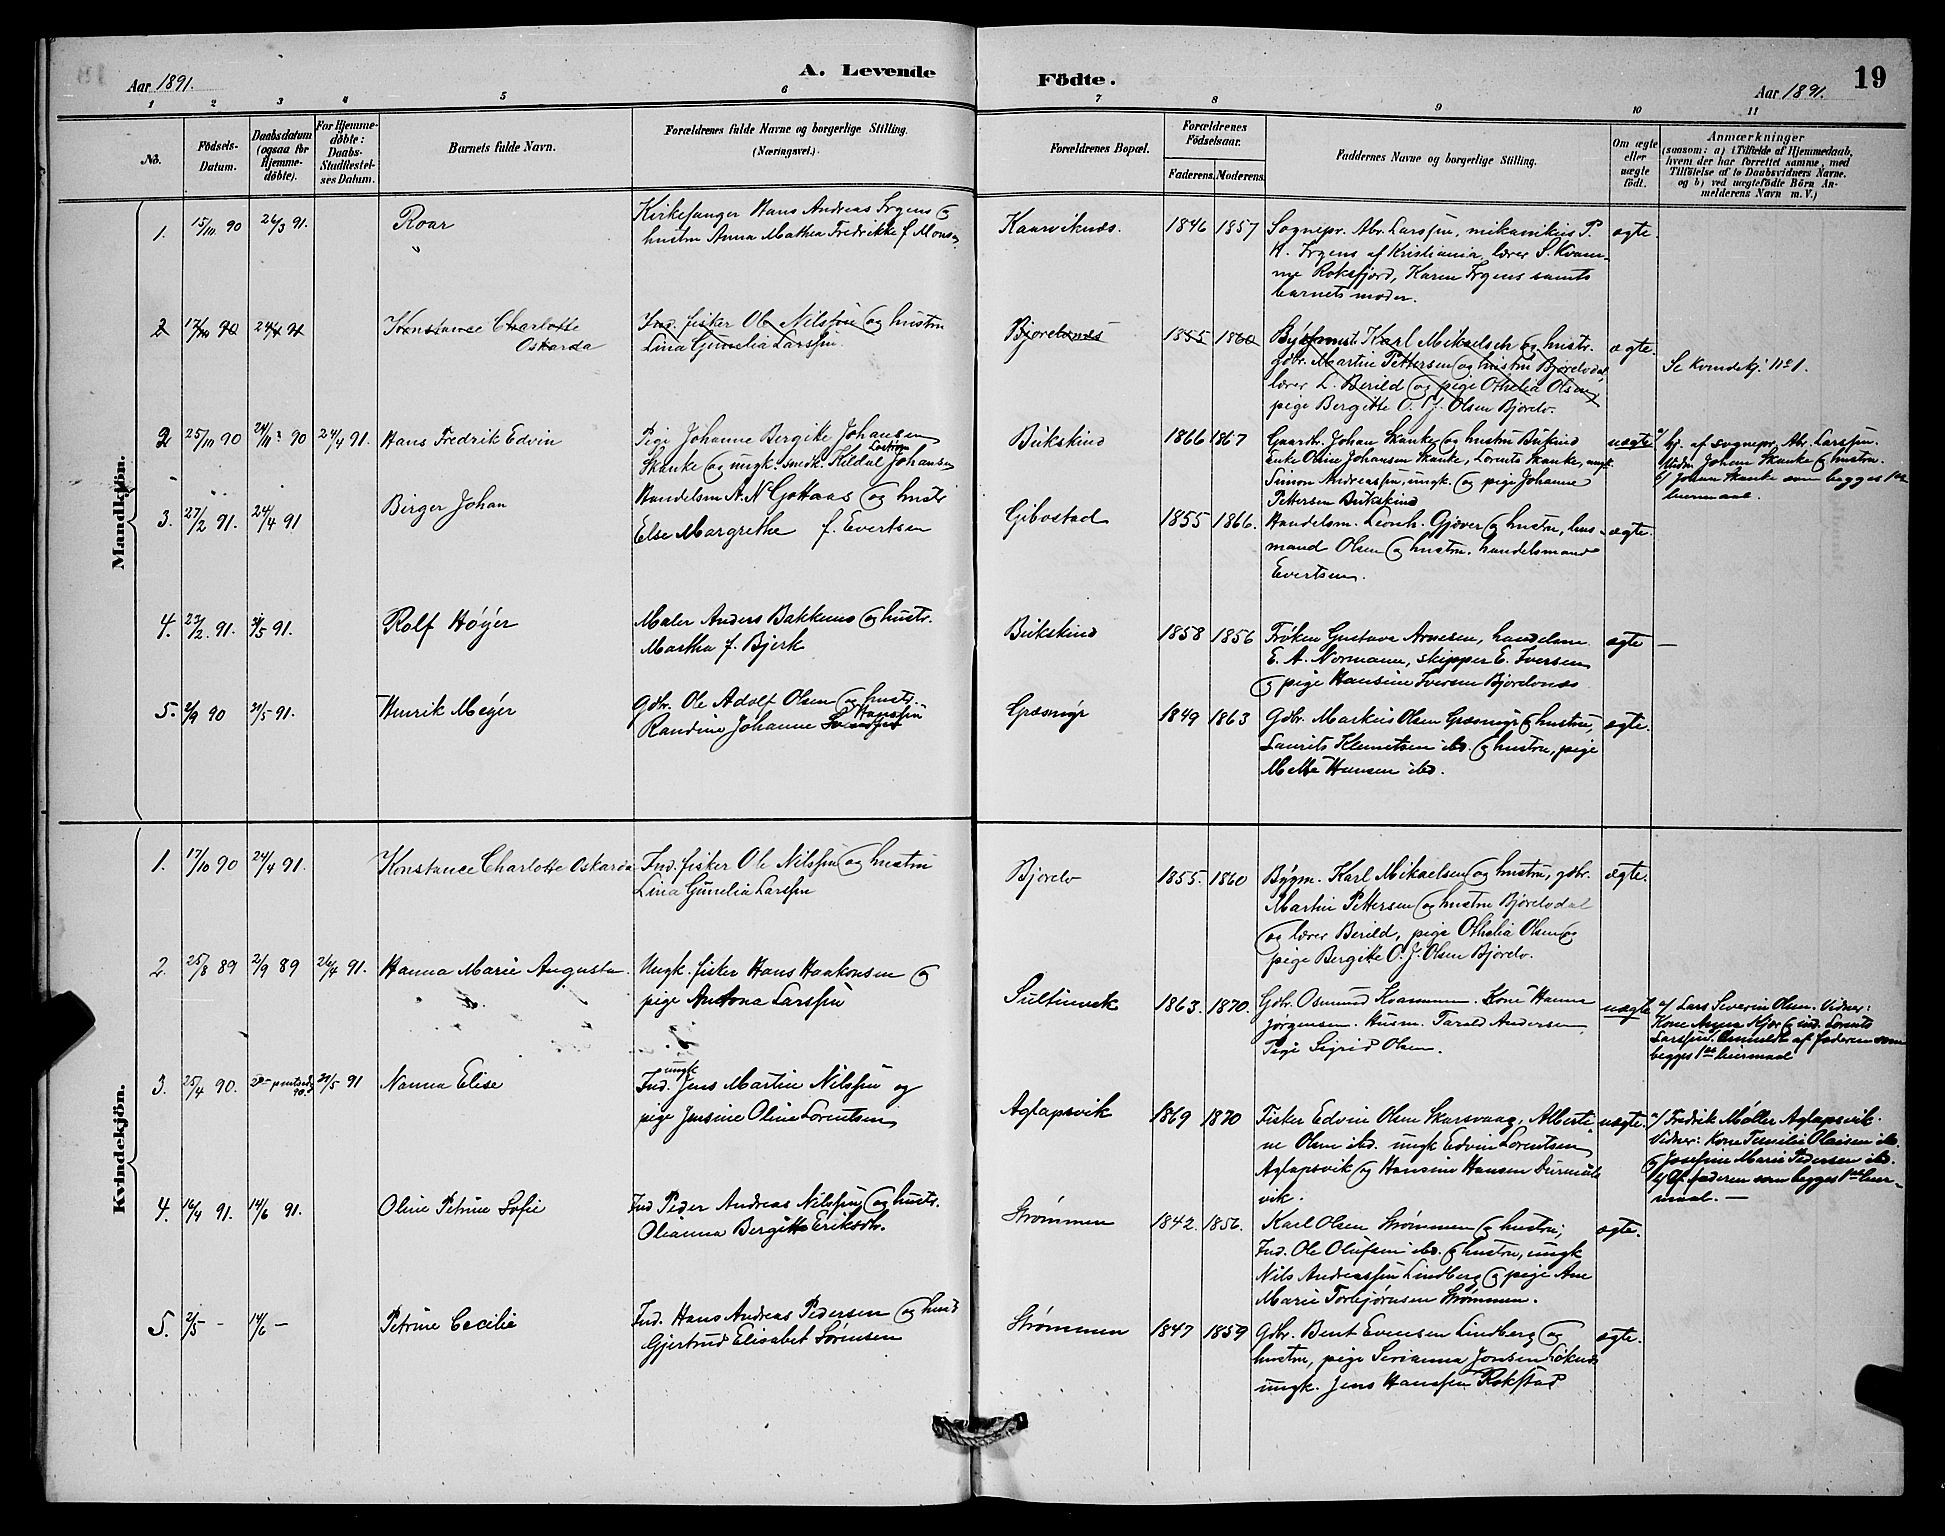 Aar 1891.
A. Levende
Födte.
Aar 1891.
19
1 2 3 4 5 6 7 8 9 10 11
No.
Födsels-
Datum.
Daabsdatum
(ogsaa for
Hjemme-
döbte).
For Hjemme-
döbte:
Daabs-
Stadfæstel-
ses Datum.
Barnets fulde Navn.
Forældrenes fulde Navne og borgerlige Stilling.
(Næringsvei.)
Forældrenes Bopæl.
Forældrenes
Födselsaar.
Faderens. Moderens.
Faddernes Navne og borgerlige Stilling.
Om ægte
eller
uægte
födt.
Anmærkninger
(saasom: a) i Tilfælde af Hjemmedaab,
hvem der har forrettet samme, med
Tilföielse af to Daabsvidners Navne.
og b) ved uægtefödte Börn An-
melderens Navn m. V.)
Mandkjön.
1.
15/11 90
26/3 91.
Roar
Kirkesanger Hans Andreas Irgens og
hustru Anna Mathea Fredrikke f. Monsen
Kaarviknes.
1846
1857
Sognepr. Abr. Larssen, mekanikus P.
K. Irgens af Kristiania, lærer S. Kvam-
me Roksfjord, Karen Irgens samt
barnets moder.
ægte.
2
17/10 90
24/4 91
Konstance Charlotte
Oskarda
Ind. fisker Ole Nilssen og hustru
Lina Gunelia Larssen.
Bjorelvnes
1855
1860
Bygmest. Karl Mikaelsen og hustr.
gdbr. Martin Pettersen og hustru Bjorelvdal,
lærer L. Berild og pige Othelia Olsen
pige Bergitte O. J. Olsen Bjorelv.
ægte.
Se Kvindekj. No 1.
2
25/10 90
24/11? 90
24/4 91.
Hans Fredrik Edvin
Pige Johanne Bergitte Johansen
Skanke og ungk. snedk. Kildal Johansen
Bukskind
1866
1867
Gaardbr. Johan Skanke og hustru Bukskind
Enke Oline Johansen Skanke, Lorents Skanke, ungk.
Simon Andreassen, ungk. og pige Johanne
Pettersen Bukskind
uægte
a/ hj. af sognepr. Abr. Larssen.
Vidn. Johan Skanke og hustru.
b/ Johan Skanke som begges 1ste
leiermaal.
3.
27/2 91.
24/4 91
Birger Johan
Handelsm. A. N. Gottaas og hustr
Else Margrethe f. Evertsen
Gibostad
1855
1866.
Handelsm. Leonh. Gjæver og hustru, hus-
mand Olsen og hustru. handelsmand
Evertsen.
ægte.
4.
22/2 91.
31/5 91.
Rolf Höyer
Maler Anders Bakkemo og hustr.
Martha f. Bjerk
Bukskind
1858
1856
Frøken Gustava Arnesen, handelsm.
E. A. Normann, skipper E. Iversen
og pige Hansine Iversen Bjorelvnes
ægte
5.
2/9 90
31/5 91.
Henrik Meyer
Gdbr. Ole Adolf Olsen og hustr.
Randine Johanne Hanssen
Græsmyr
1849
1863
Gdbr. Markus Olsen Græsmyr og hustru,
Laurits Klemetsen ibd. og hustru, pige
Mette Hansen ibd.
ægte.
Kvindekjön.
1.
17/10 90
24/4 91.
Konstance Charlotte Oskarda
Ind. fisker Ole Nilssen og hustru
Lina Gunelia Larssen
Bjorelv
1855.
1860
Bygm. Karl Mikaelsen og hustru, gdbr.
Martin Pettersen og hustru Bjorelvdal
og lærer Berild, pige Othelia Olsen og
pige Bergitte O. J. Olsen Bjorelv.
ægte.
2.
25/8 89
2/9 89
26/4 91.
Hanna Marie Augusta.
Ungk. fisker Hans Haakonsen og
pige Antona Larssen
Sultinvik
1863.
1870.
Gdbr. Osmund Kvammen. Kone Hanna
Jørgensen. Husm. Tarald Andersen
Pige Sigrid Olsen.
uægte
a/ Lars Severin Olsen. Vidner:
Kone Anna Mjør og ind. Lorents
Larssen. Anmeldt af faderen som
begges 1ste leiermaal
3.
25/4 90.
31/5 91
Nanna Elise
ungk
Ind. Jens Martin Nilssen og
pige Jensine Oline Lorentsen
Aglapsvik
1869
1870
Fisker Edvin Olsen Skarsvaag, Alberti-
ne Olsen ibd. ungk Edvin Lorentsen
Aglapsvik og Hansine Hansen Durmaals
vik.
uægte.
a/ Fredrik Møller Aglapsvik.
Vidner: Kone Emilie Olaisen ib.
og Josefine Marie Pedersen ibd.
b/ Af faderen som begges 1ste leier-
maal. —
4.
16/4 91.
14/6 91.
Oline Petrine Sofie
Ind Peder Andreas Nilssen og hustr.
Olianna Bergitte Eriksdtr.
Strømmen
1842.
1856.
Karl Olsen Strømmen og hustru,
Ind. Ole Olufsen ibd. og hustru, ungk
Nils Andreassen Lindberg og pige Ane
Marie Torbjørnsen Strømmen.
ægte.
5.
2/5 -
14/6 —
Petrine Cecilie
Ind. Hans Andreas Pedersen og hust
Gjertrud Elisabet Sørensen
Strømmen
1847
1859
Gdbr. Bent Evensen Lindberg og
hustru, pige Serianna Jonsen Løknes
ungk. Jens Hanssen Rokstad
ægte.